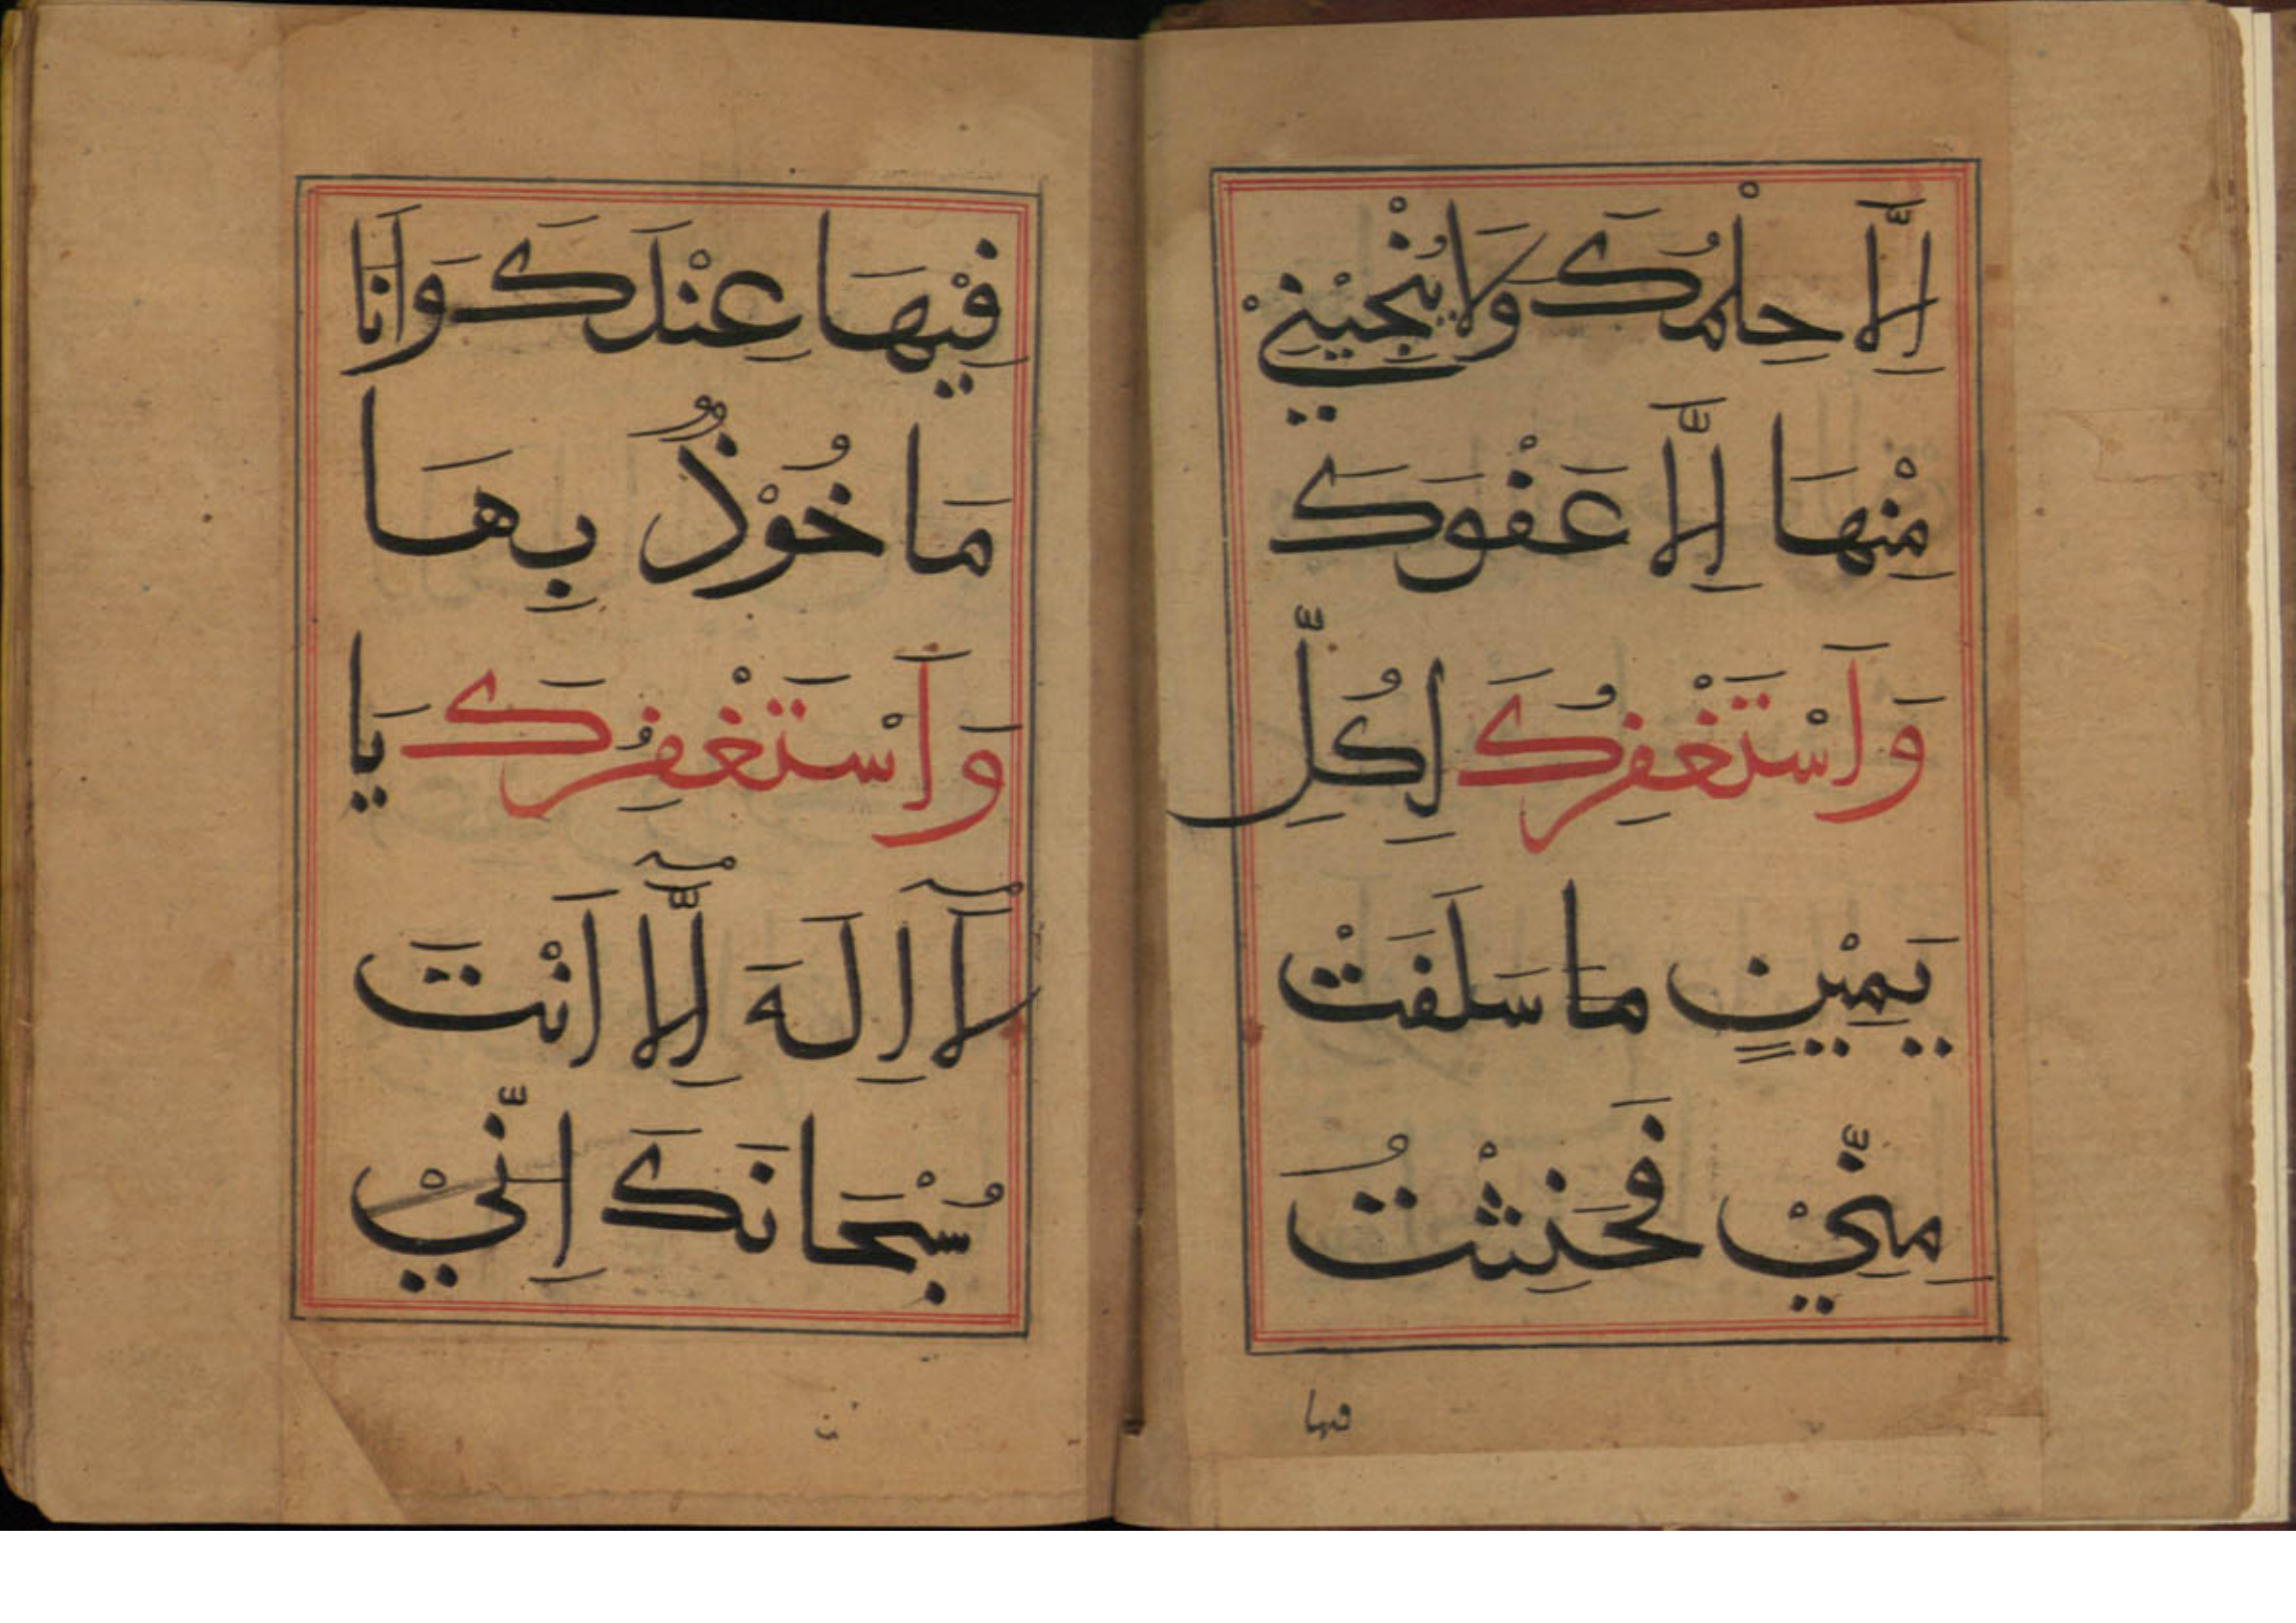 اِلَّا حِلْمُكَ وَلَا يُنْجِيْنِيْ
مِنْهَا اِلَّا عَفْوَكَ
وَاَسْتَغْفِرُكَ لِكُلِّ
يَمِيْنٍ مَا سَلَفَتْ
مِنِّيْ فَحَنِثْتُ
فيها
فِيْهَا عِنْدَكَ وَاَنَا
مَاخُوْذٌ بِهَا
وَاَسْتَغْفِرُكَ يَا
لَآ اِلَهَ اِلَّآ اَنْتَ
سُبْحَانَكَ اِنِّيْ